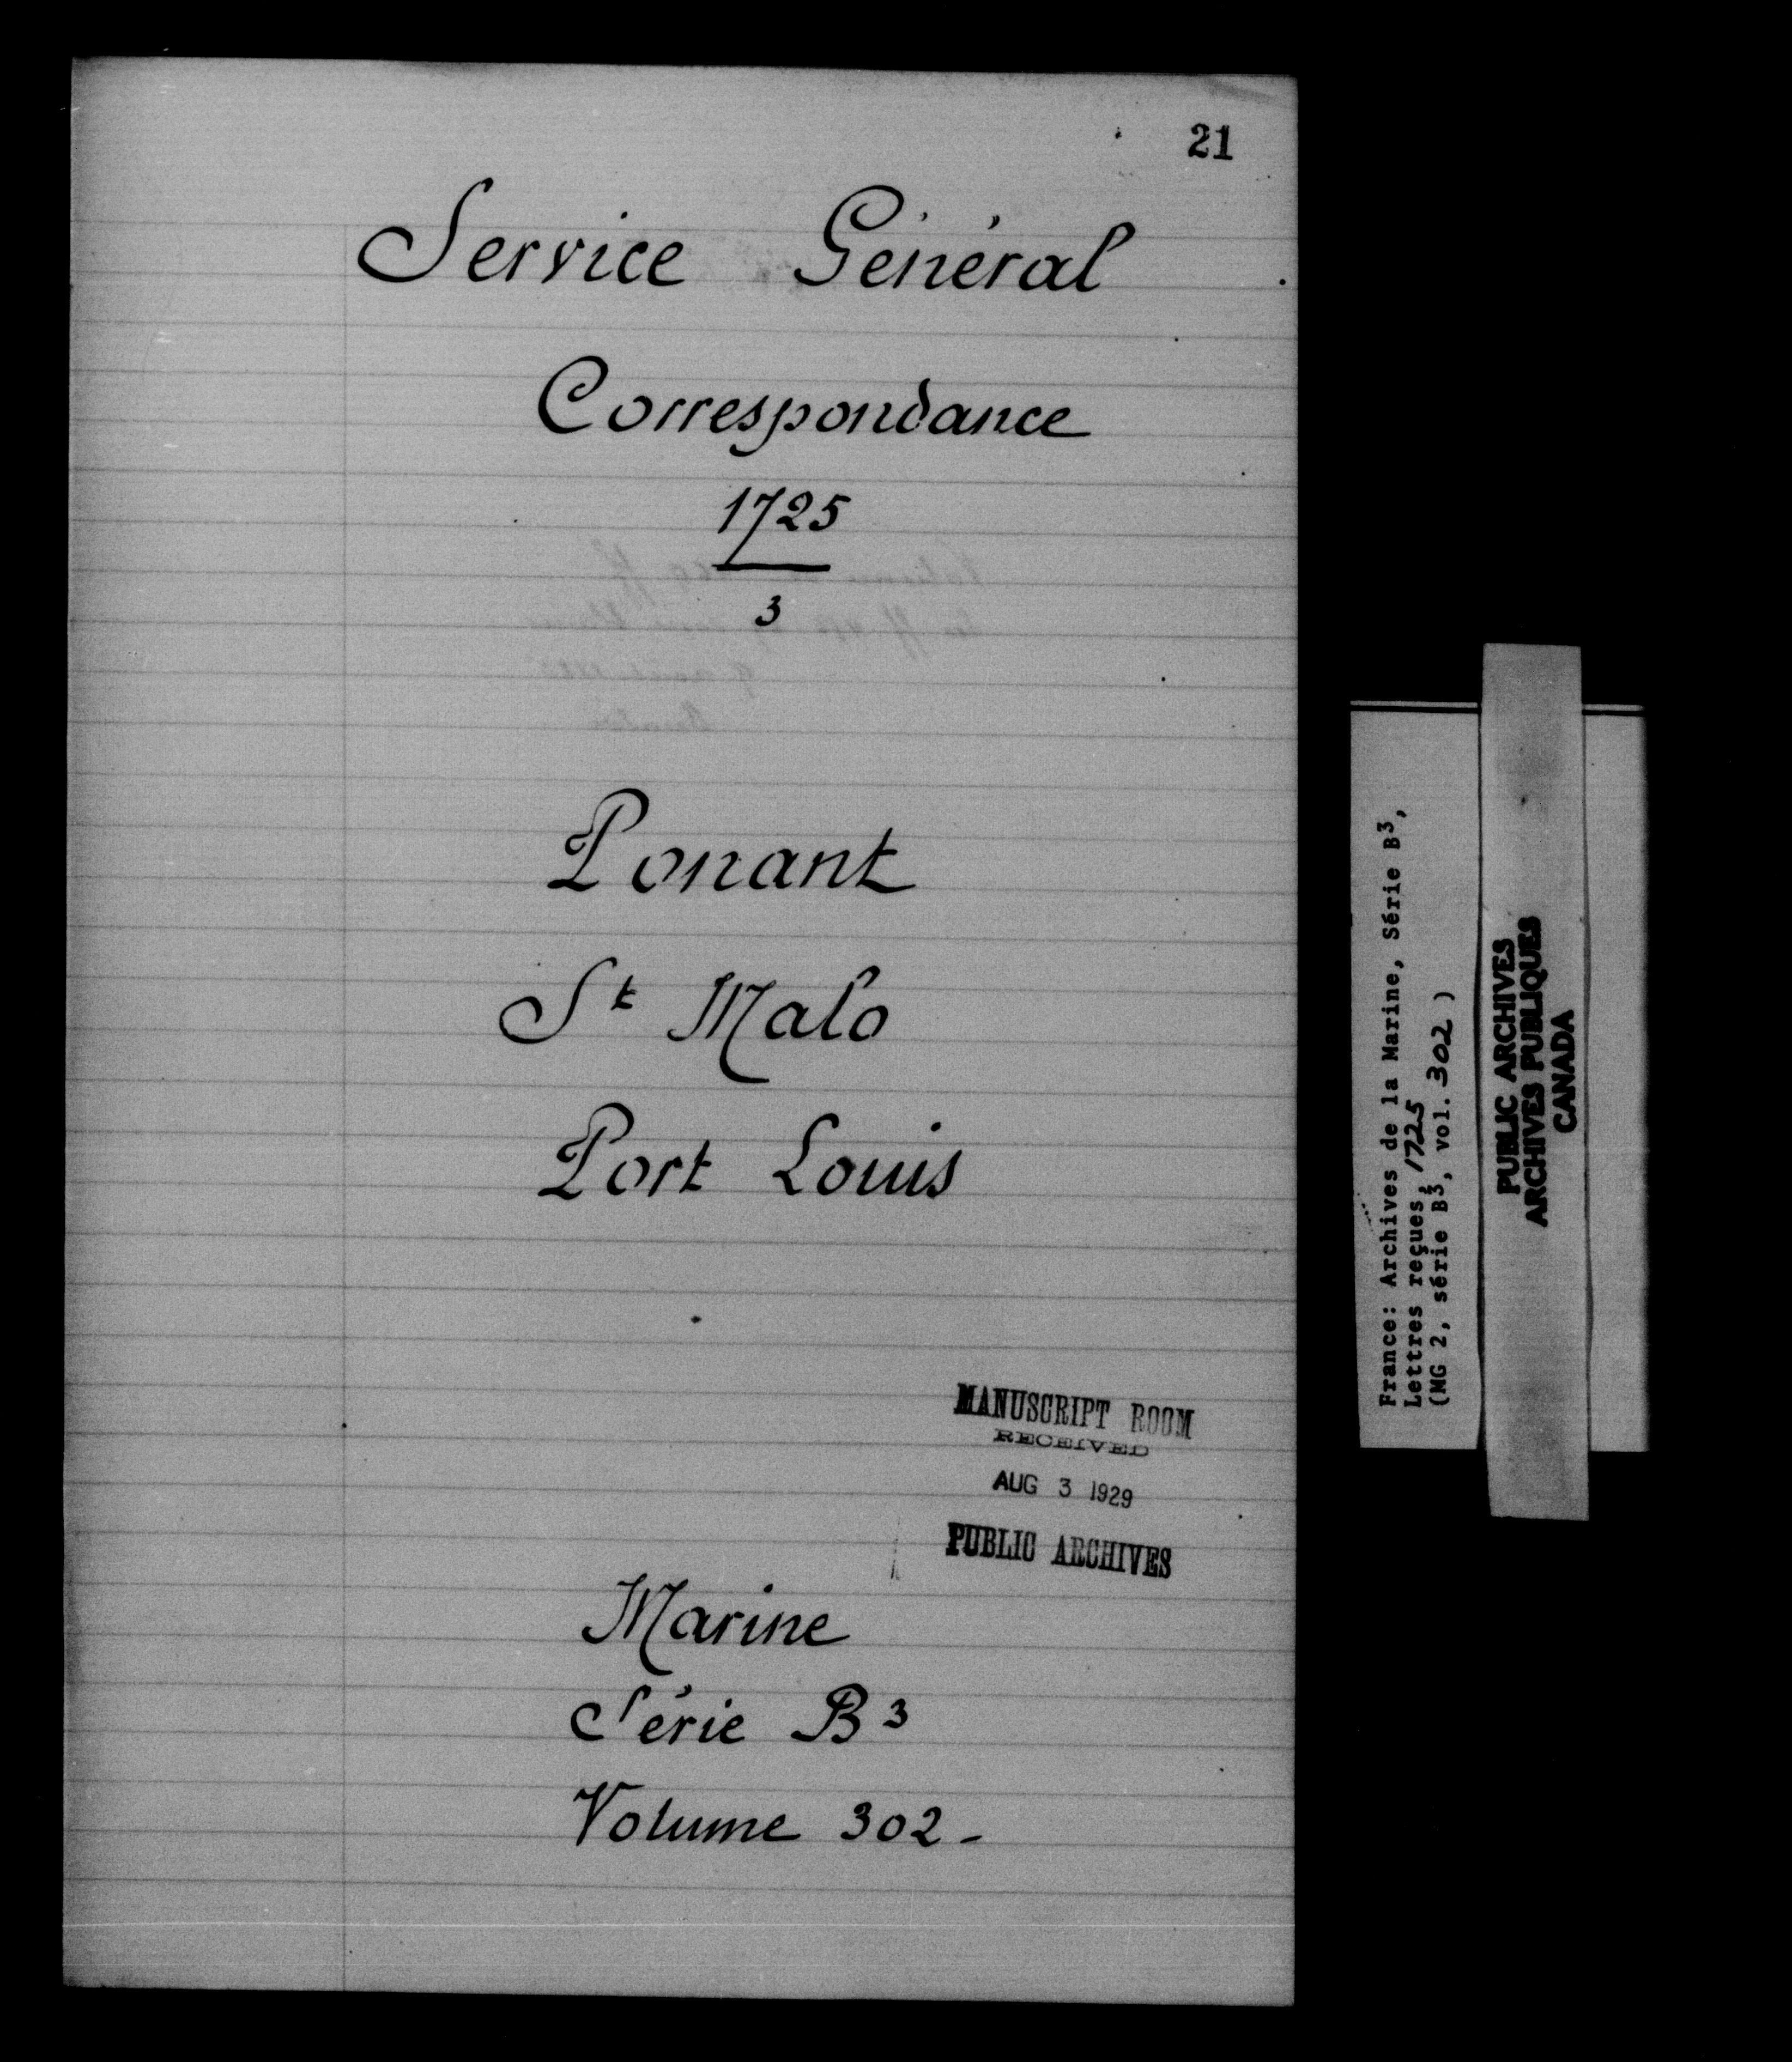 21
Service Général
Correspondance
1725
3
Ponant
St Malo
Port Louis
MANUSCRIPT ROOM
RECEIVED
AUG 3 1929
PUBLIC ARCHIVES
Marine
Série B3
Volume 302-
France: Archives de la Marine, Série B3,
Lettres reçues, 1725
(MG 2, série B3, vol. 302)
PUBLIC ARCHIVES
ARCHIVES PUBLIQUES
CANADA